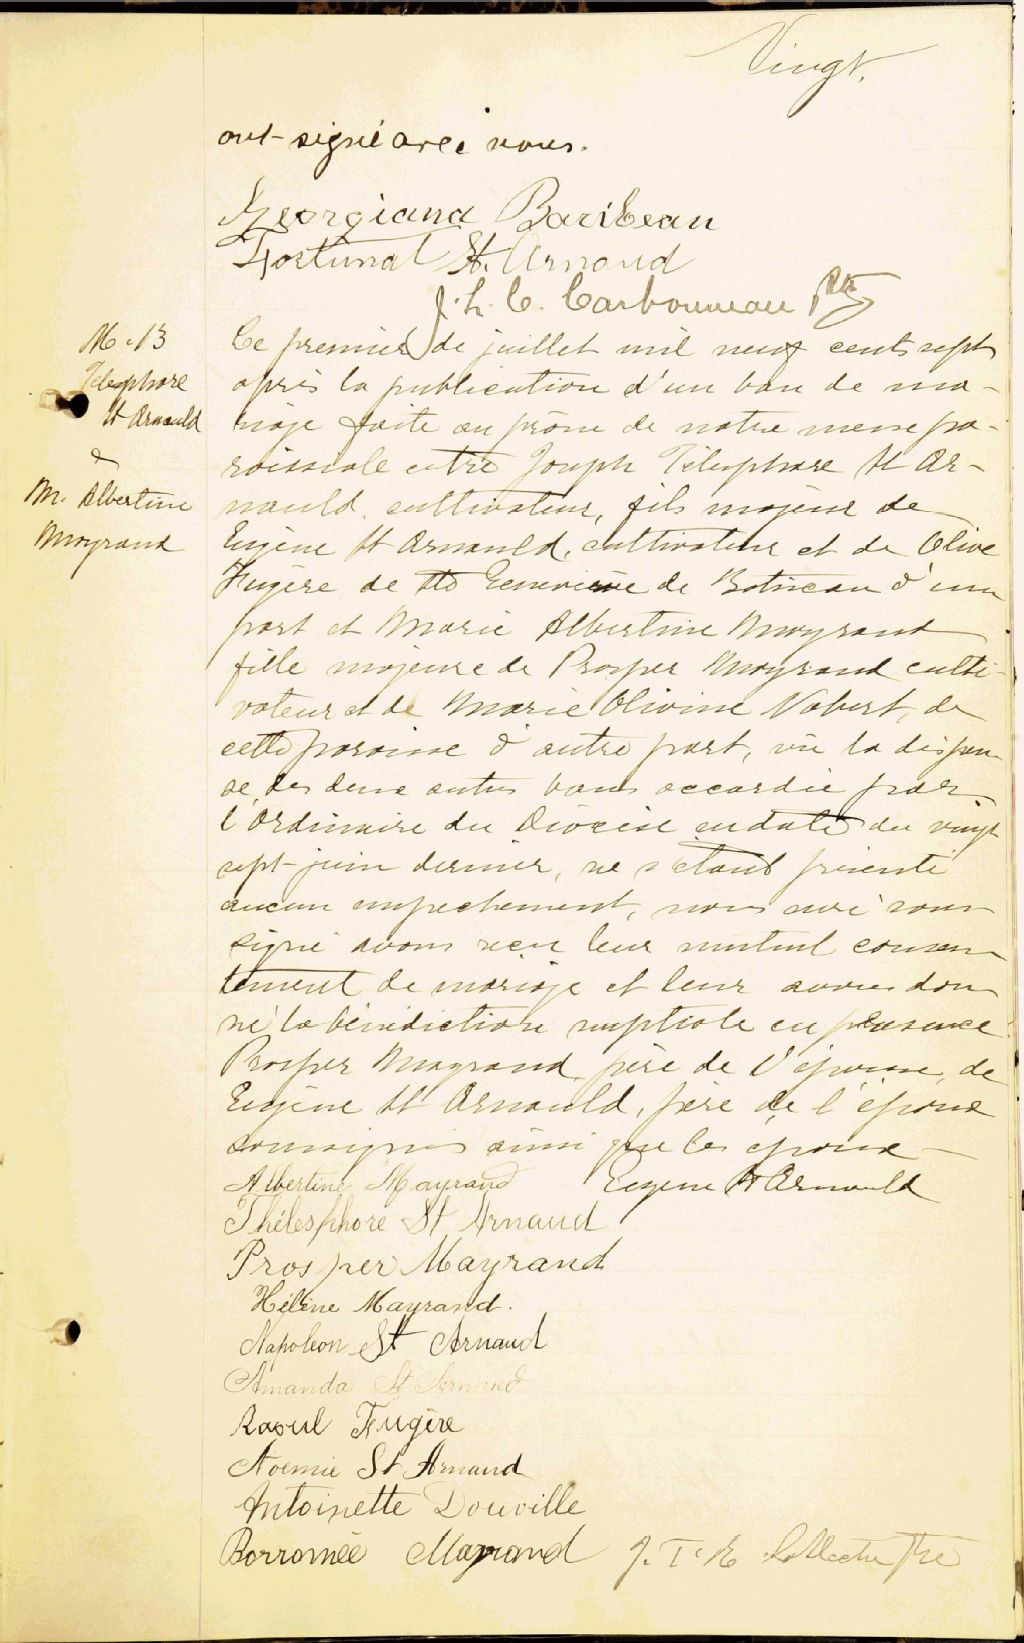 Vingt.
ont signé avec nous.
Georgiana Baribeau
Fortunat St. Arnaud
J. L. C. Carbonneau Ptre
M. 13
Télesphore
St Arnauld
&
M. Albertine
Mayrand
Ce premier de juillet mil neuf cent sept
après la publication d'un ban de ma-
riage faite au prône de notre messe pa-
roissiale entre Joseph Télesphore St Ar-
nauld, cultivateur, fils majeur de
Eugène St Arnauld, cultivateur et de Olive
Fugère de Ste Geneviève de Batiscan d'une
part et Marie Albertine Mayrand
fille majeure de Prosper Mayrand culti-
vateur et de Marie Olivine Nobert, de
cette paroisse d'autre part, vu la dispen
se des deux autres bans accordée par
l'Ordinaire du Diocèse en date du vingt
sept juin dernier, ne s'étant présenté
aucun empechement, nous curé sous
signé avons reçu leur mutuel consen
tement de mariage et leur avons don
né la bénédiction nuptiale en présence
Prosper Mayrand père de l'épouse, de
Eugène St Arnauld, père de l'époux
soussignés ainsi que les époux
Albertine Mayrand Eugène St Arnauld
Thélesphore St Arnaud
Prosper Mayrand
Hélène Mayrand.
Napoléon St Arnaud
Amanda St Arnaud
Raoul Fugère
Noemie St Arnaud
Antoinette Douville
Borromée Mayrand J. T. R. Laflèche Ptre